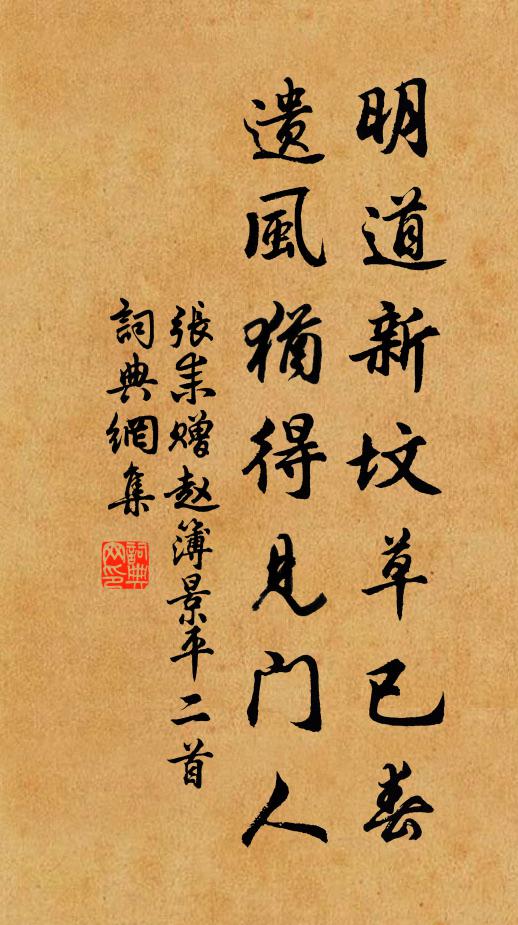 明道新坟草已春
遗風猶得見門人
張耒赠赵簿景平二首
詞典網集
詞典網印